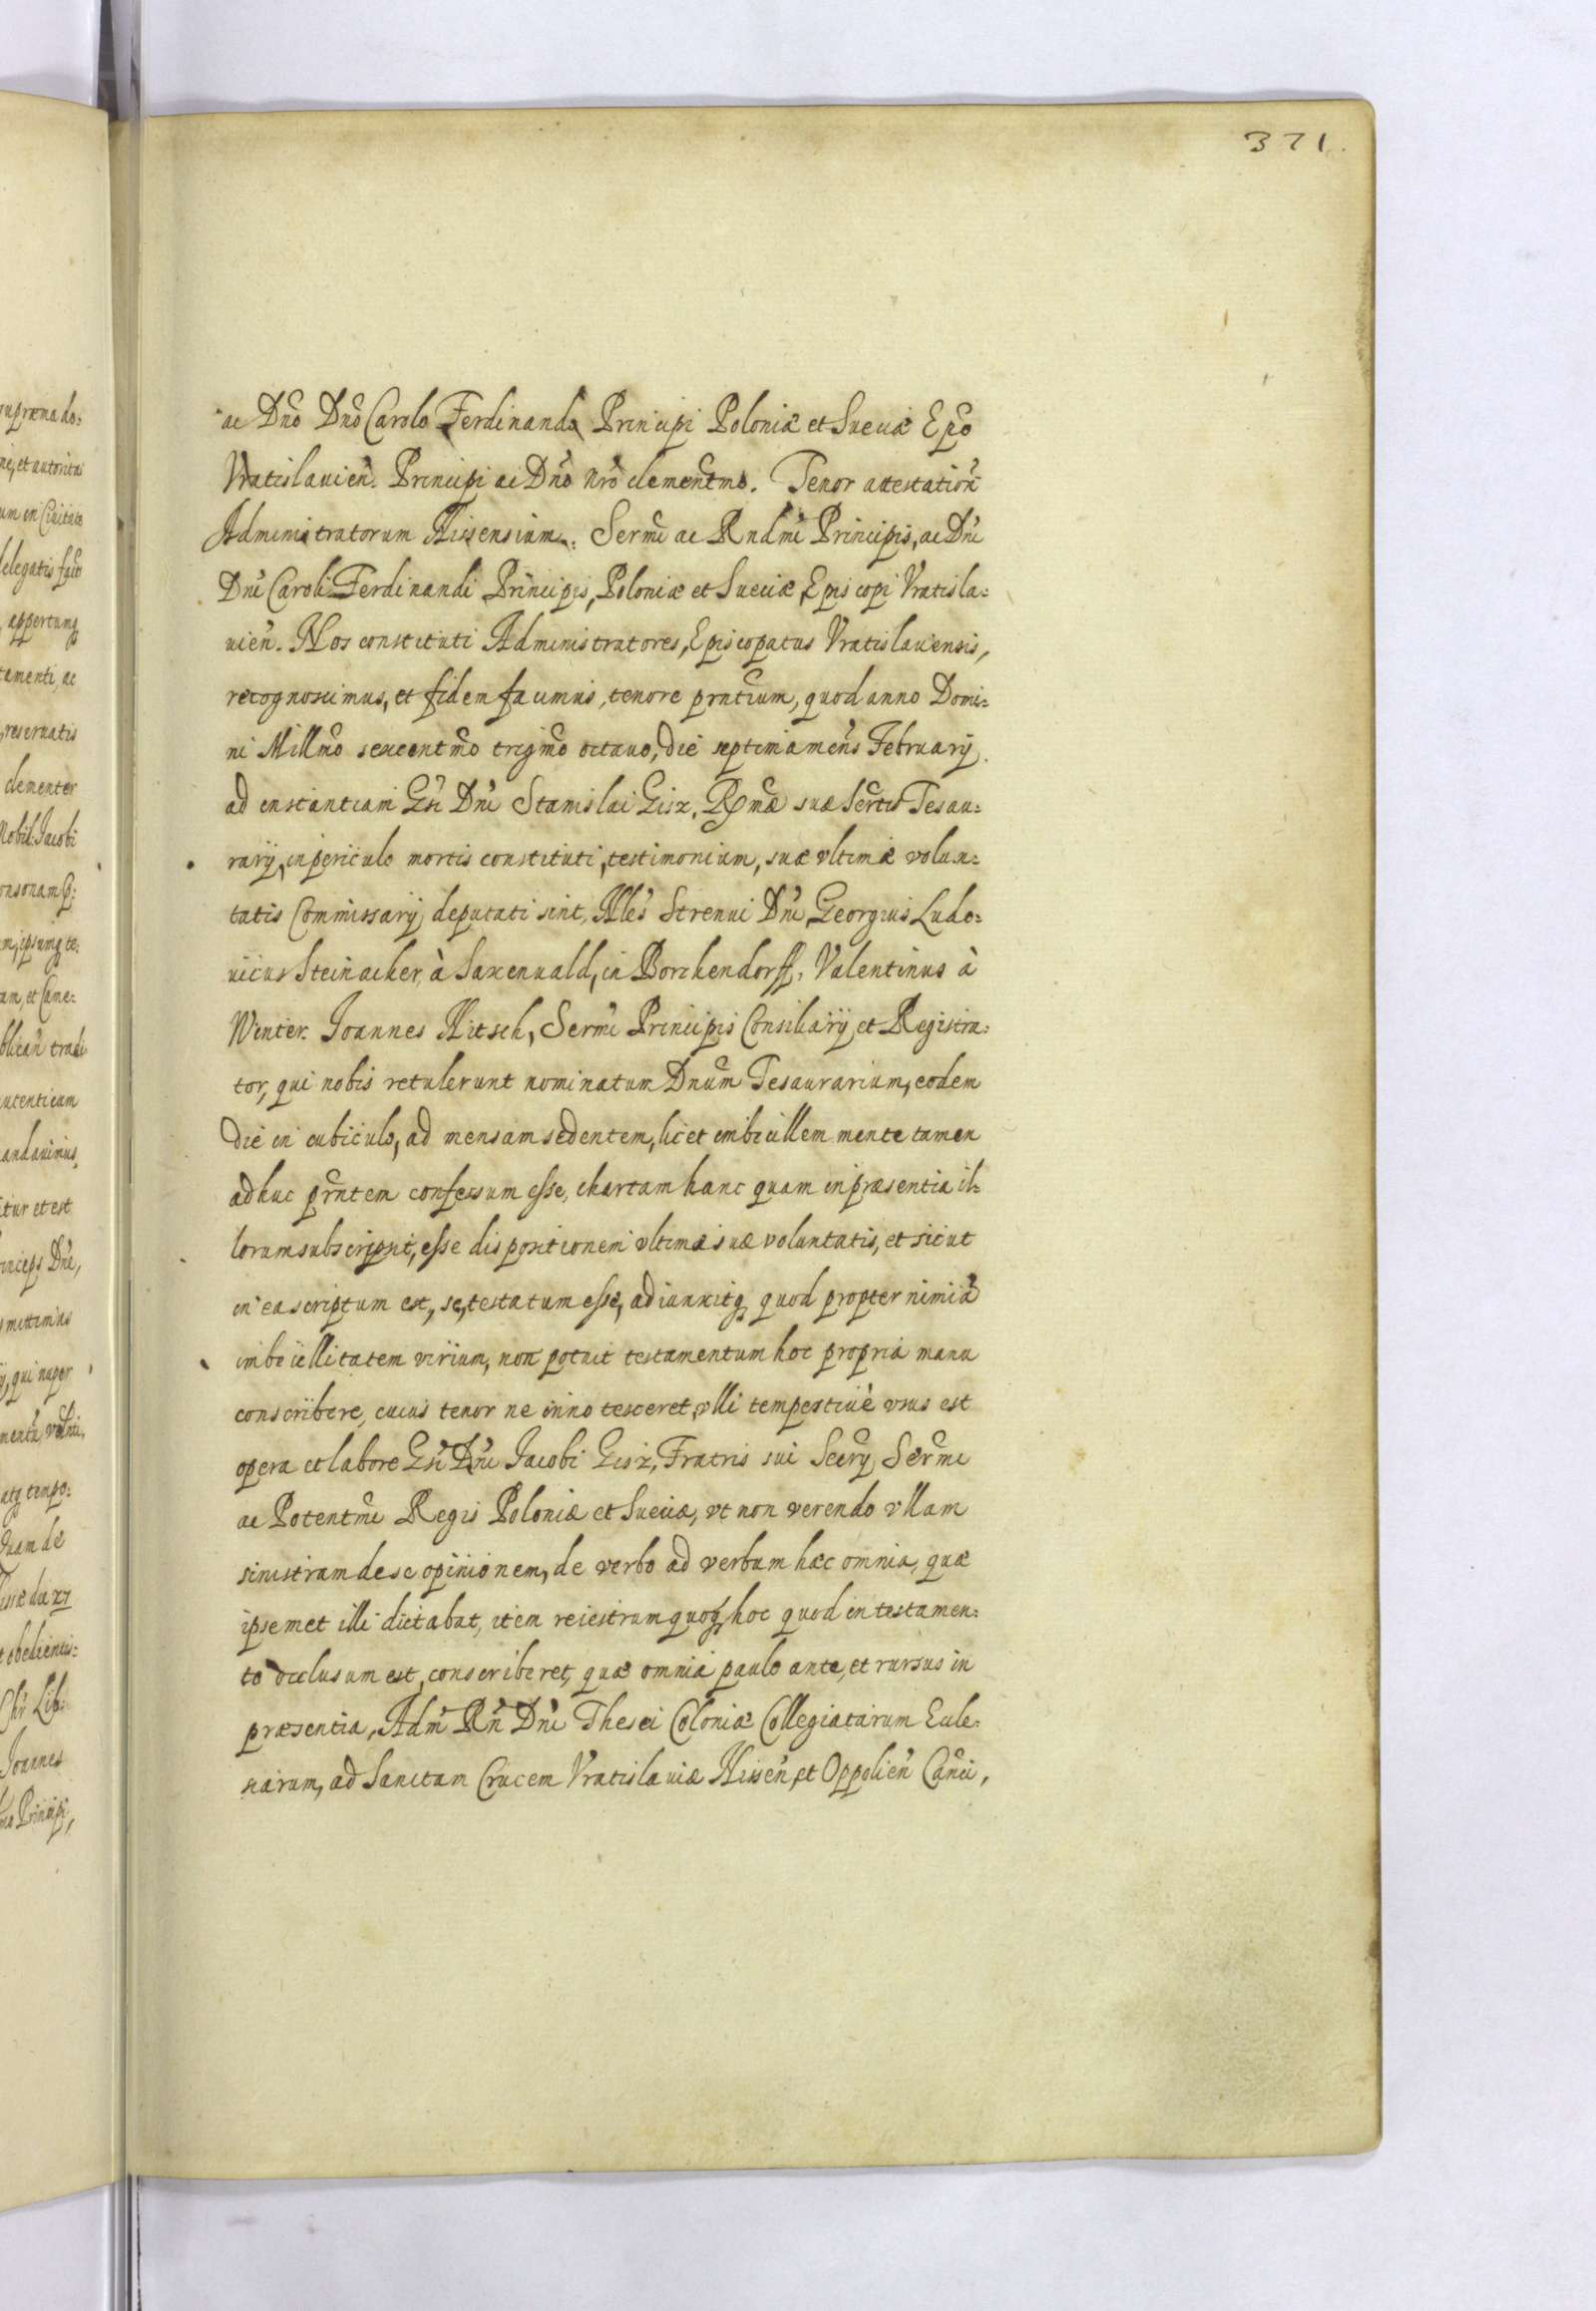 371.
ac Dño Dño Carolo Ferdinando Principi Poloniæ et Sueciæ Epõ
Vratislauien̄. Principi ac Dño nrõ clementmõ. Tenor attestation̄
Administratorum Nissensium. Sermi ac Rndmi Principis, ac Dñi
Dñi Caroli Ferdinandi Principis, Poloniæ et Sueciæ, Episcopi Vratisla=
uien̄. Nos constituti Administratores, Episcopatus Vratislauiensis,
recognoscimus, et fidem facimus, tenore prñtium, quod anno Domi=
ni Millmõ sexcentmõ trigmõ octauo, die septima mens̄ February.
ad instantiam Gsi Dñi Stanislai Gisz, Rmæ suæ Sertis Tesau=
rarÿ, in periculo mortis constituti, testimonium, suæ vltimæ volun=
tatis Commissarÿ deputati sint, Nles̄ Strenui Dñi Georgius Ludo=
uicus Steinacher, à Saxenuald, in Borchendorff, Valentinus à
Winter. Joannes Nitsch, Sermi Principis Consiliarÿ et Registra=
tor, qui nobis retulerunt nominatum Dnum Tesaurarium, eodem
die in cubiculo, ad mensam sedentem, licet imbecillem mente tamen
adhuc prñtem confessum esse, chartam hanc quam in præsentia il=
lorum subscripsit, esse dispositionem vltimæ suæ voluntatis, et sicut
in ea scriptum est, se, testatum esse, adiunxitq₃ quod propter nimiã
imbecillitatem virium, non potuit testamentum hoc propria manu
conscribere, cuius tenor ne innotesceret vlli tempestiuè vsus est
opera et labore Gsi Dñi Jacobi Gisz, Fratris sui Secrÿ Sermi
ac Potentmi Regis Poloniæ et Sueciæ, vt non verendo vllam
sinistram de se opinionem, de verbo ad verbum hæc omnia, quæ
ipsemet illi dictabat, item reiestrum quoq₃ hoc quod in testamen=
to occlusum est, conscriberet, quæ omnia paulo ante, et rursus in
præsentia, Adm̃ Rñ Dñi Thesei Coloniæ Collegiatarum Eccle=
siarum, ad Sanctam Crucem Vratislauiæ Nissen̄, et Oppolien̄ Canci,